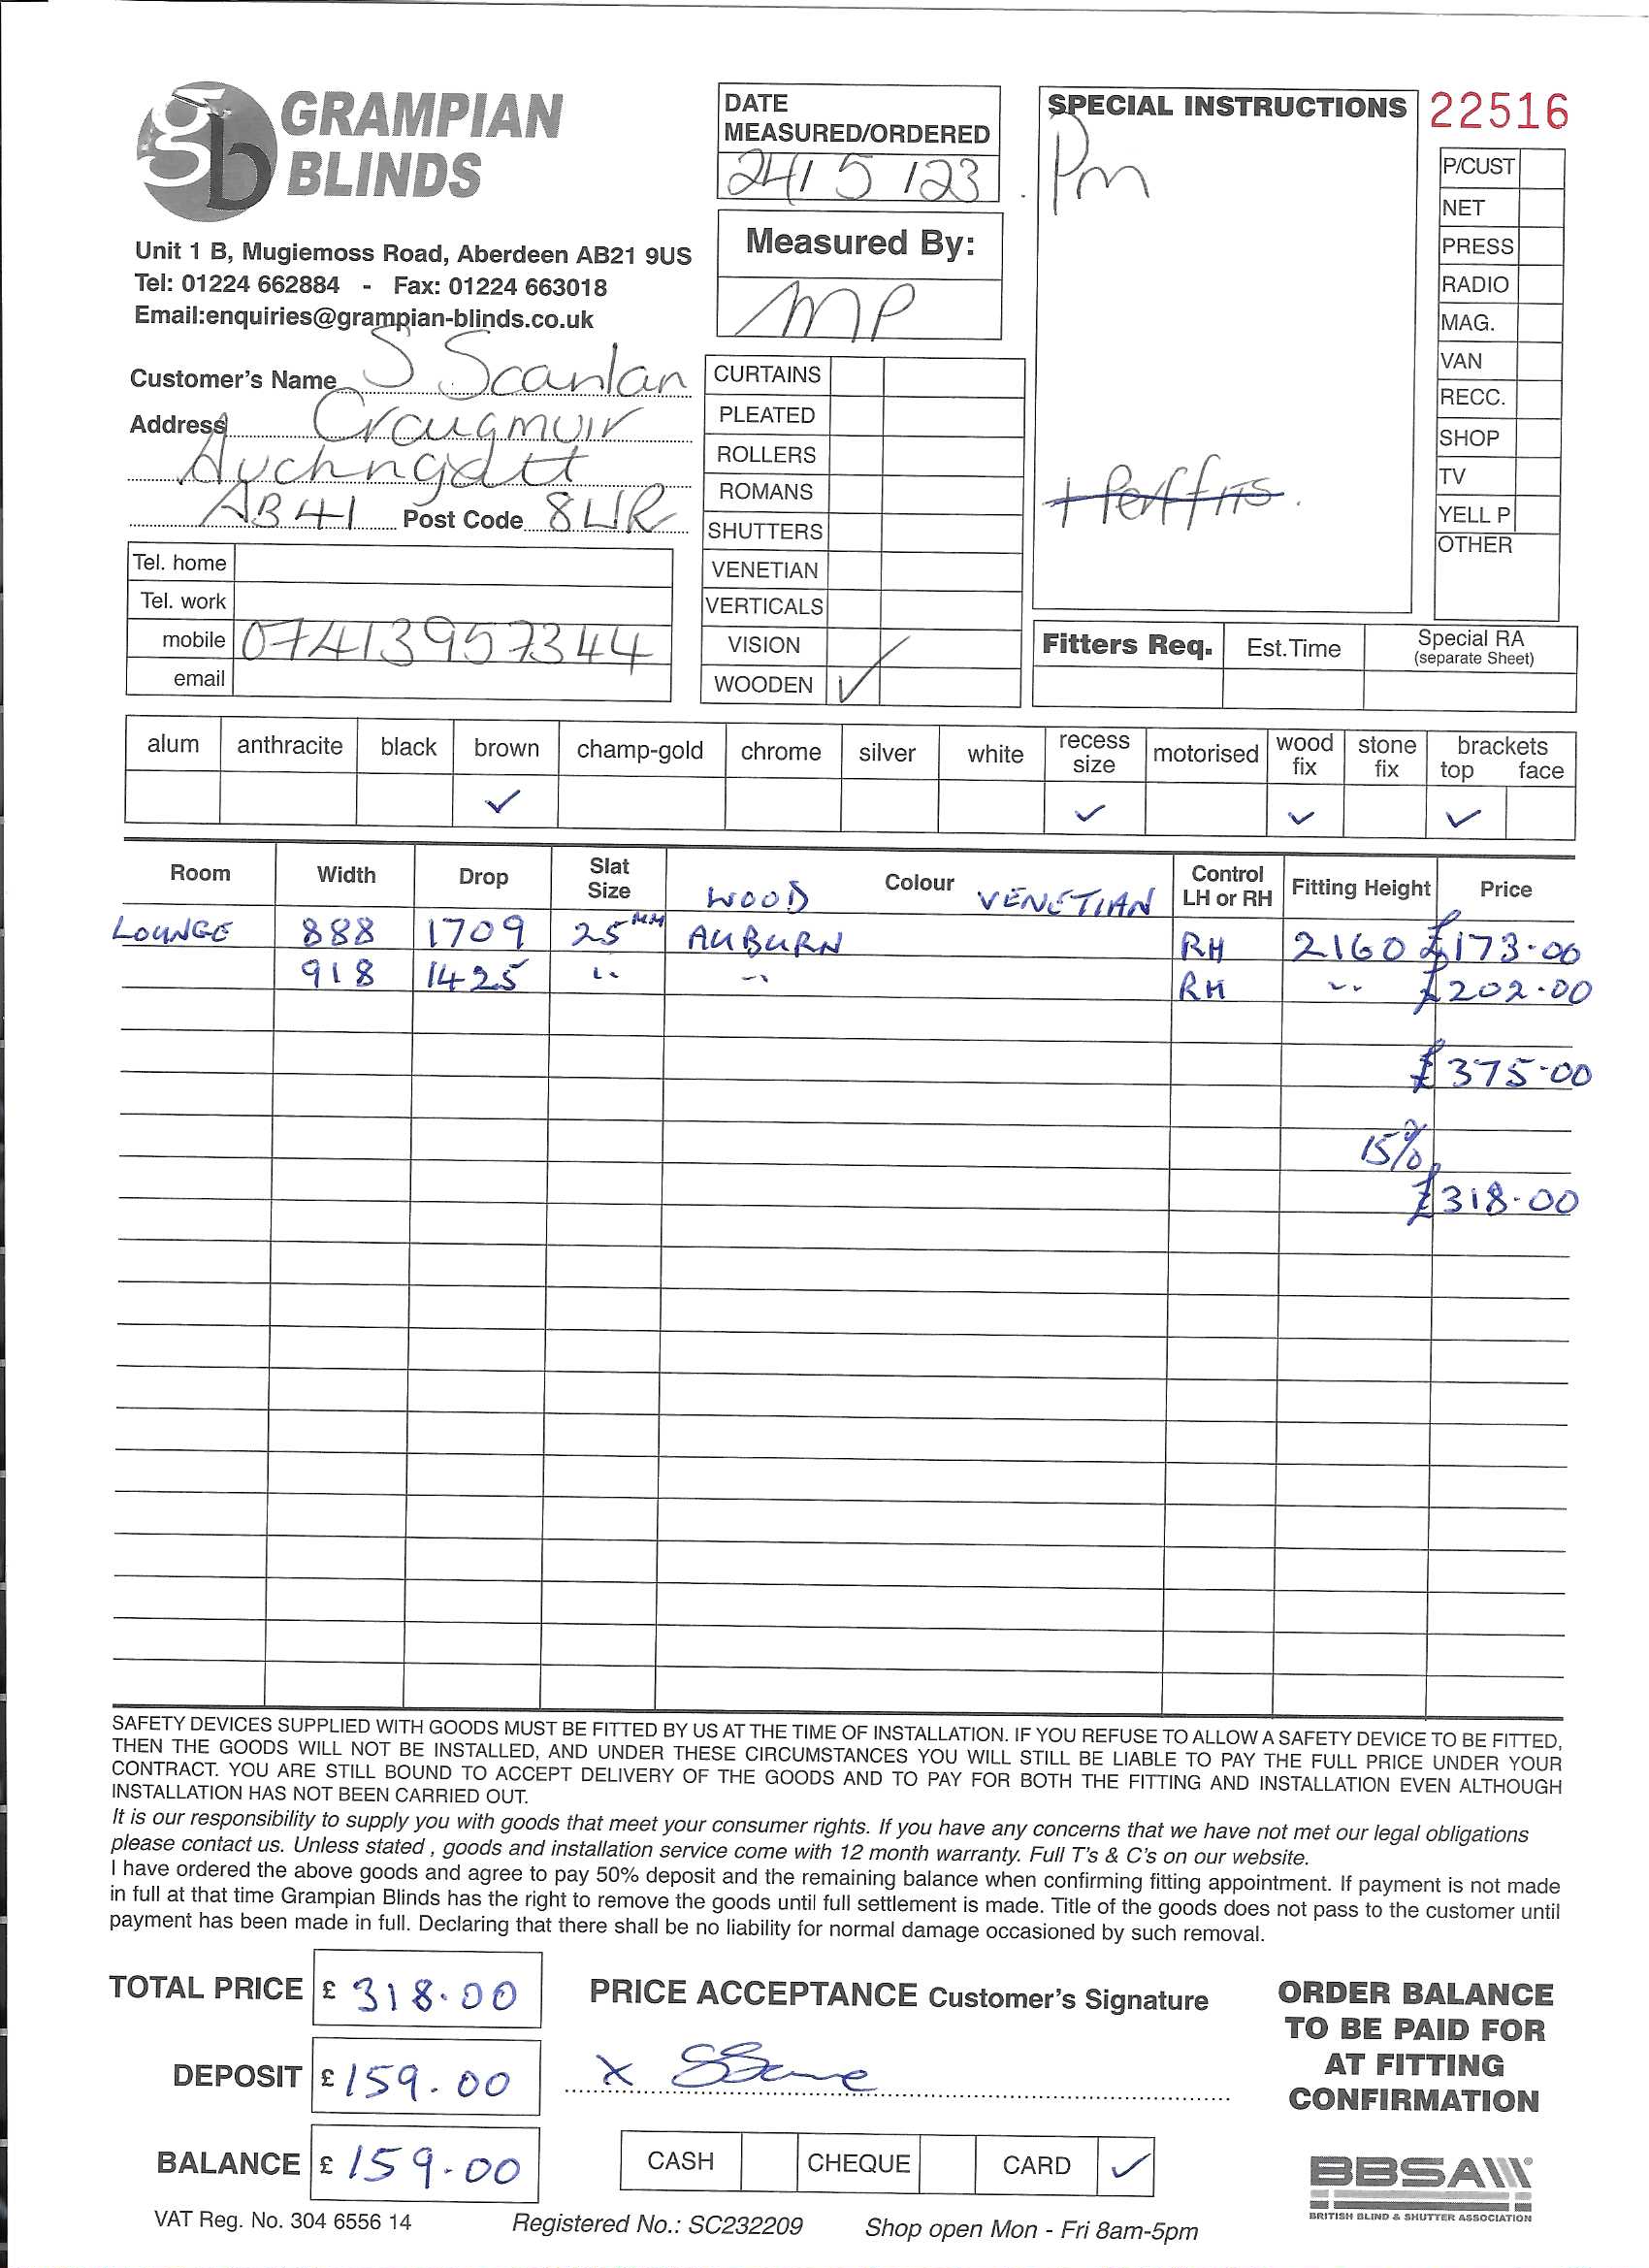 GRAMPIAN
BLINDS
Unit 1 B, Mugiemoss Road, Aberdeen AB21 9US
Tel: 01224 662884 - Fax: 01224 663018
Email:enquiries@grampian-blinds.co.uk
Customer's Name S Scanlan
Address Craigmuir
Auchngatt
AB41 Post Code
Tel. home
Tel. work
mobile 07413957344
email
DATE
MEASURED/ORDERED
24/5/23
Measured By:
MP
CURTAINS
PLEATED
ROLLERS
ROMANS
SHUTTERS
VENETIAN
VERTICALS
VISION
WOODEN ✓
SPECIAL INSTRUCTIONS
Pm
+ Perffits.
22516
P/CUST
NET
PRESS
RADIO
MAG.
VAN
RECC.
SHOP
TV
YELL P
OTHER
Fitters Req. Est.Time Special RA
(separate Sheet)
alum anthracite black brown champ-gold chrome silver white recess size motorised wood fix stone fix brackets top face
✓ ✓ ✓ ✓
Room Width Drop Slat Size WOOD Colour VENETIAN Control LH or RH Fitting Height Price
LOUNGE 888 1709 25MM AUBURN RH 2160 £173.00
918 1425 " " RH " £202.00
£375.00
15%
£318.00
SAFETY DEVICES SUPPLIED WITH GOODS MUST BE FITTED BY US AT THE TIME OF INSTALLATION. IF YOU REFUSE TO ALLOW A SAFETY DEVICE TO BE FITTED,
THEN THE GOODS WILL NOT BE INSTALLED, AND UNDER THESE CIRCUMSTANCES YOU WILL STILL BE LIABLE TO PAY THE FULL PRICE UNDER YOUR
CONTRACT. YOU ARE STILL BOUND TO ACCEPT DELIVERY OF THE GOODS AND TO PAY FOR BOTH THE FITTING AND INSTALLATION EVEN ALTHOUGH
INSTALLATION HAS NOT BEEN CARRIED OUT.
It is our responsibility to supply you with goods that meet your consumer rights. If you have any concerns that we have not met our legal obligations
please contact us. Unless stated , goods and installation service come with 12 month warranty. Full T's & C's on our website.
I have ordered the above goods and agree to pay 50% deposit and the remaining balance when confirming fitting appointment. If payment is not made
in full at that time Grampian Blinds has the right to remove the goods until full settlement is made. Title of the goods does not pass to the customer until
payment has been made in full. Declaring that there shall be no liability for normal damage occasioned by such removal.
TOTAL PRICE £ 318.00
DEPOSIT £ 159.00
BALANCE £ 159.00
PRICE ACCEPTANCE Customer's Signature
x
CASH CHEQUE CARD ✓
ORDER BALANCE
TO BE PAID FOR
AT FITTING
CONFIRMATION
BBSA
BRITISH BLIND & SHUTTER ASSOCIATION
VAT Reg. No. 304 6556 14 Registered No.: SC232209 Shop open Mon - Fri 8am-5pm